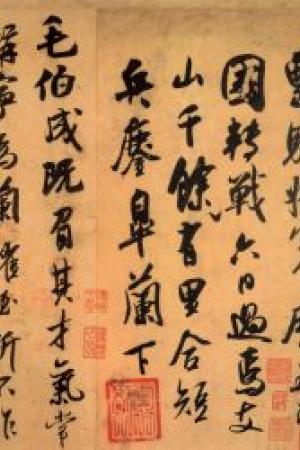 國轉戰六日過焉支
山千餘有里合短
兵鏖皋蘭下
毛伯成既負其才氣常
寧為蘭摧玉折不作